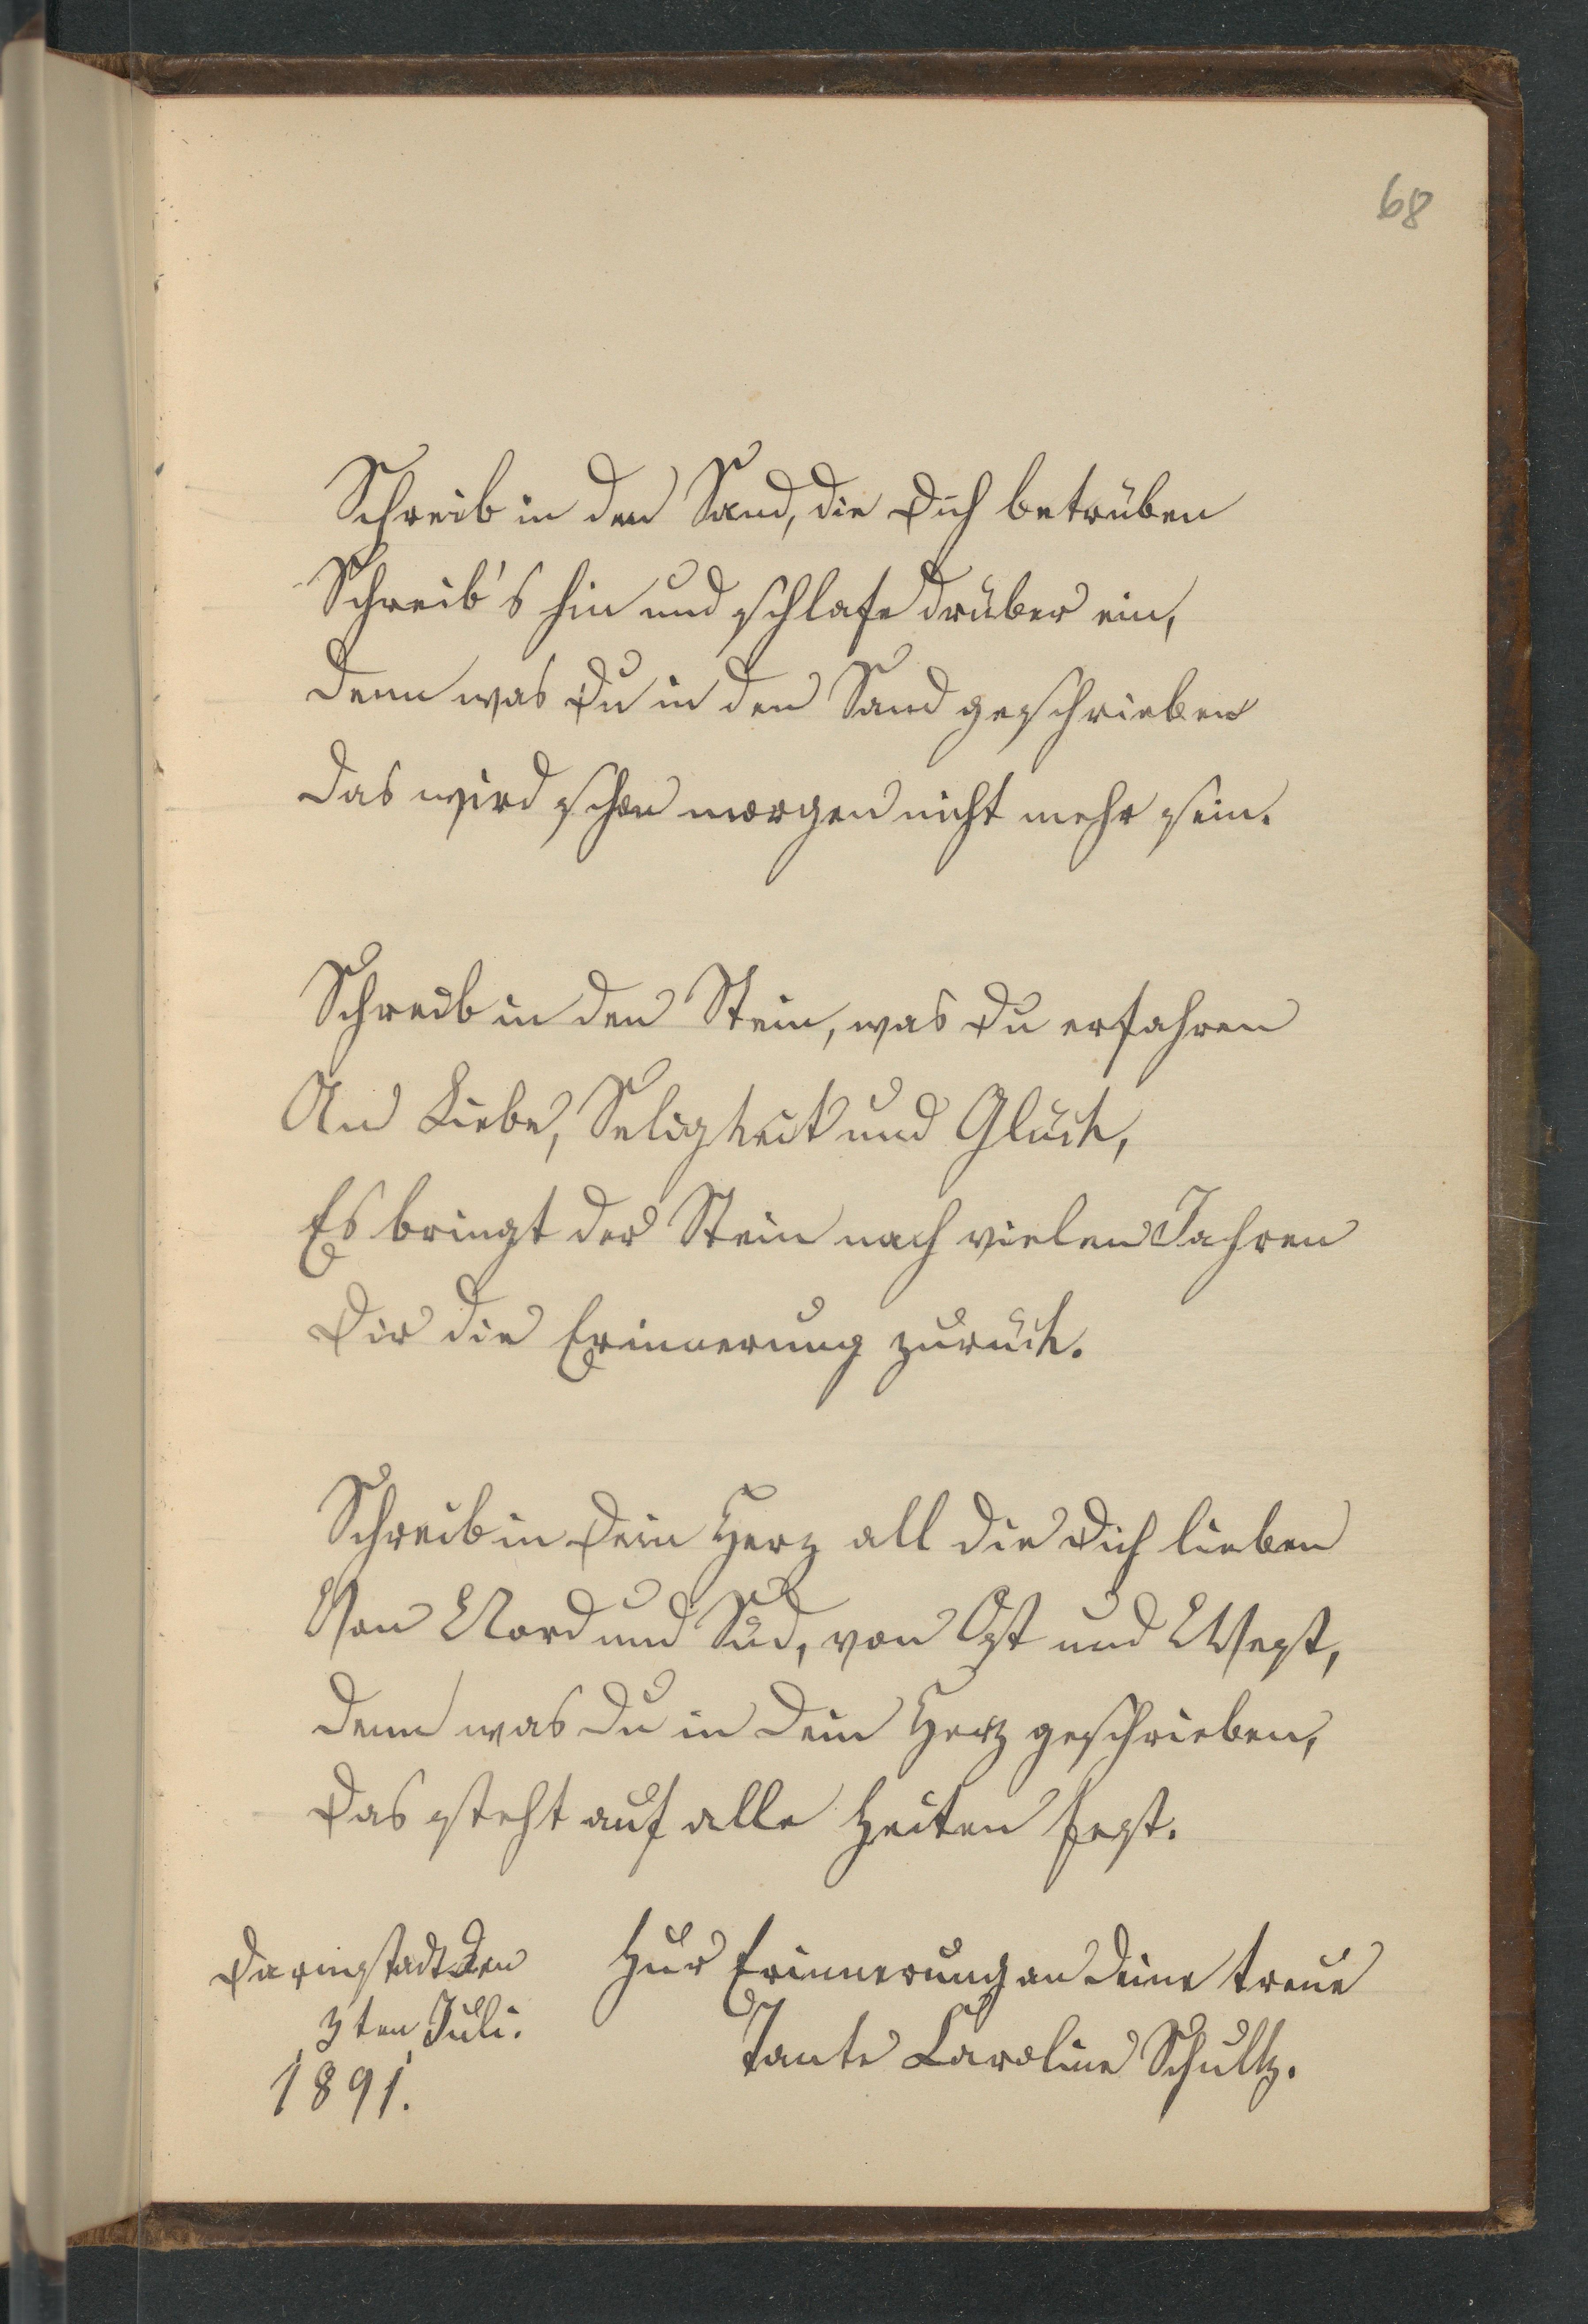 68
Schreib in den Sand, die Dich betrüben
Schreib's hin und schlafe drüber ein,
denn was Du in den Sand geschrieben
das wird schon morgen nicht mehr sein.
Schreib in den Stein, was Du erfahren
An Liebe, Seligkeit und Glück,
Es bringt der Stein nach vielen Jahren
Dir die Erinnerung zurück.
Schreib in Dein Herz all die Dich lieben
Von Nord und Süd, von Ost und West,
denn was Du in Dein Herz geschrieben,
Das steht auf alle Zeiten fest.
Darmstadt den
3ten Juli.
1891.
Zur Erinnerung an Deine treue
Tante Caroline Schultz.